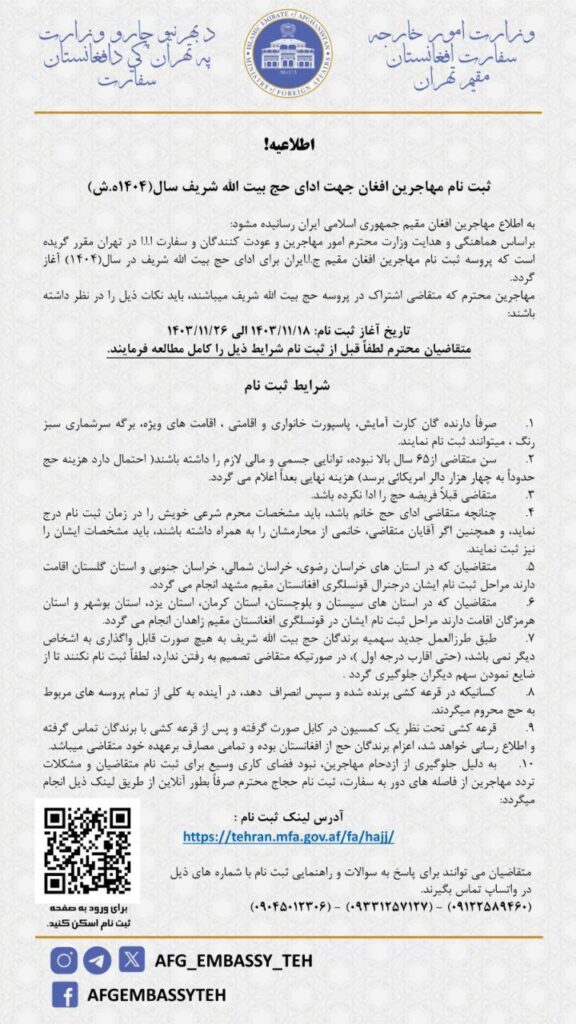 د بهرنیو چارو وزارت
په تهران کي د افغانستان
سفارت
ISLAMIC EMIRATE OF AFGHANISTAN
MINISTRY OF FOREIGN AFFAIRS
وزارت امور خارجه
سفارت افغانستان
مقیم تهران
اطلاعیه!
ثبت نام مهاجرین افغان جهت ادای حج بیت الله شریف سال(۱۴۰۴ه.ش)
به اطلاع مهاجرین افغان مقیم جمهوری اسلامی ایران رسانیده مشود:
براساس هماهنگی و هدایت وزارت محترم امور مهاجرین و عودت کنندگان و سفارت ا.ا.ا در تهران مقرر گریده
است که پروسه ثبت نام مهاجرین افغان مقیم ج.ا.ایران برای ادای حج بیت الله شریف در سال(۱۴۰۴) آغاز
گردد.
مهاجرین محترم که متقاضی اشتراک در پروسه حج بیت الله شریف میباشند، باید نکات ذیل را در نظر داشته
باشند:
تاریخ آغاز ثبت نام: ۱۴۰۳/۱۱/۱۸ الی ۱۴۰۳/۱۱/۲۶
متقاضیان محترم لطفاً قبل از ثبت نام شرایط ذیل را کامل مطالعه فرمایند.
شرایط ثبت نام
۱. صرفاً دارنده گان کارت آمایش، پاسپورت خانواری و اقامتی ، اقامت های ویژه، برگه سرشماری سبز
رنگ ، میتوانند ثبت نام نمایند.
۲. سن متقاضی از۶۵ سال بالا نبوده، توانایی جسمی و مالی لازم را داشته باشند( احتمال دارد هزینه حج
حدوداً به چهار هزار دالر امریکائی برسد) هزینه نهایی بعداً اعلام می گردد.
۳. متقاضی قبلاً فریضه حج را ادا نکرده باشد.
۴. چنانچه متقاضی ادای حج خانم باشد، باید مشخصات محرم شرعی خویش را در زمان ثبت نام درج
نماید، و همچنین اگر آقایان متقاضی، خانمی از محارمشان را به همراه داشته باشند، باید مشخصات ایشان را
نیز ثبت نمایند.
۵. متقاضیان که در استان های خراسان رضوی، خراسان شمالی، خراسان جنوبی و استان گلستان اقامت
دارند مراحل ثبت نام ایشان درجنرال قونسلگری افغانستان مقیم مشهد انجام می گردد.
۶. متقاضیان که در استان های سیستان و بلوچستان، استان کرمان، استان یزد، استان بوشهر و استان
هرمزگان اقامت دارند مراحل ثبت نام ایشان در قونسلگری افغانستان مقیم زاهدان انجام می گردد.
۷. طبق طرزالعمل جدید سهمیه برندگان حج بیت الله شریف به هیچ صورت قابل واگذاری به اشخاص
دیگر نمی باشد، (حتی اقارب درجه اول )، در صورتیکه متقاضی تصمیم به رفتن ندارد، لطفاً ثبت نام نکنند تا از
ضایع نمودن سهم دیگران جلوگیری گردد .
۸. کسانیکه در قرعه کشی برنده شده و سپس انصراف دهد، در آینده به کلی از تمام پروسه های مربوط
به حج محروم میگردند.
۹. قرعه کشی تحت نظر یک کمسیون در کابل صورت گرفته و پس از قرعه کشی با برندگان تماس گرفته
و اطلاع رسانی خواهد شد، اعزام برندگان حج از افغانستان بوده و تمامی مصارف برعهده خود متقاضی میباشد.
۱۰. به دلیل جلوگیری از ازدحام مهاجرین، نبود فضای کاری وسیع برای ثبت نام متقاضیان و مشکلات
تردد مهاجرین از فاصله های دور به سفارت، ثبت نام حجاج محترم صرفاً بطور آنلاین از طریق لینک ذیل انجام
میگردد:
آدرس لینک ثبت نام :
https://tehran.mfa.gov.af/fa/hajj/
برای ورود به صفحه
ثبت نام اسکن کنید.
متقاضیان می توانند برای پاسخ به سوالات و راهنمایی ثبت نام با شماره های ذیل
در واتساپ تماس بگیرند.
(۰۹۱۲۲۵۸۹۴۶۰) – (۰۹۳۳۱۲۵۷۱۲۷) – (۰۹۰۴۵۰۱۲۳۰۶)
AFG_EMBASSY_TEH
AFGEMBASSYTEH